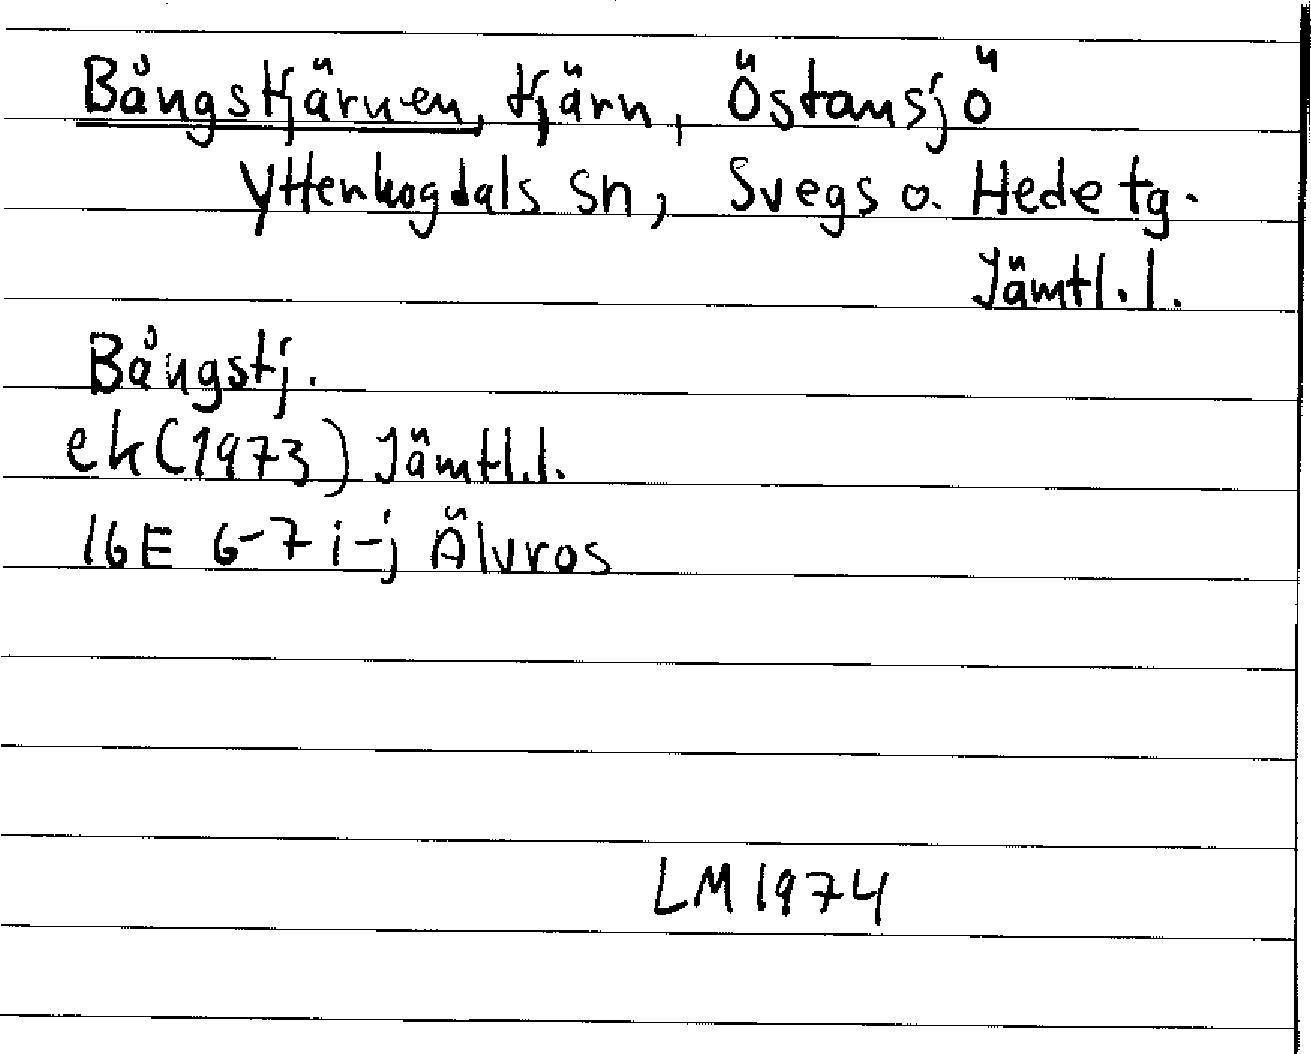 Bångstjärnen, tjärn, Östansjö
Ytterhogdals sn, Svegs o. Hede tg.
Jämtl.l.
Bångstj.
ek (1973) Jämtl.l.
16E 6-7 i-j Älvros
LM 1974